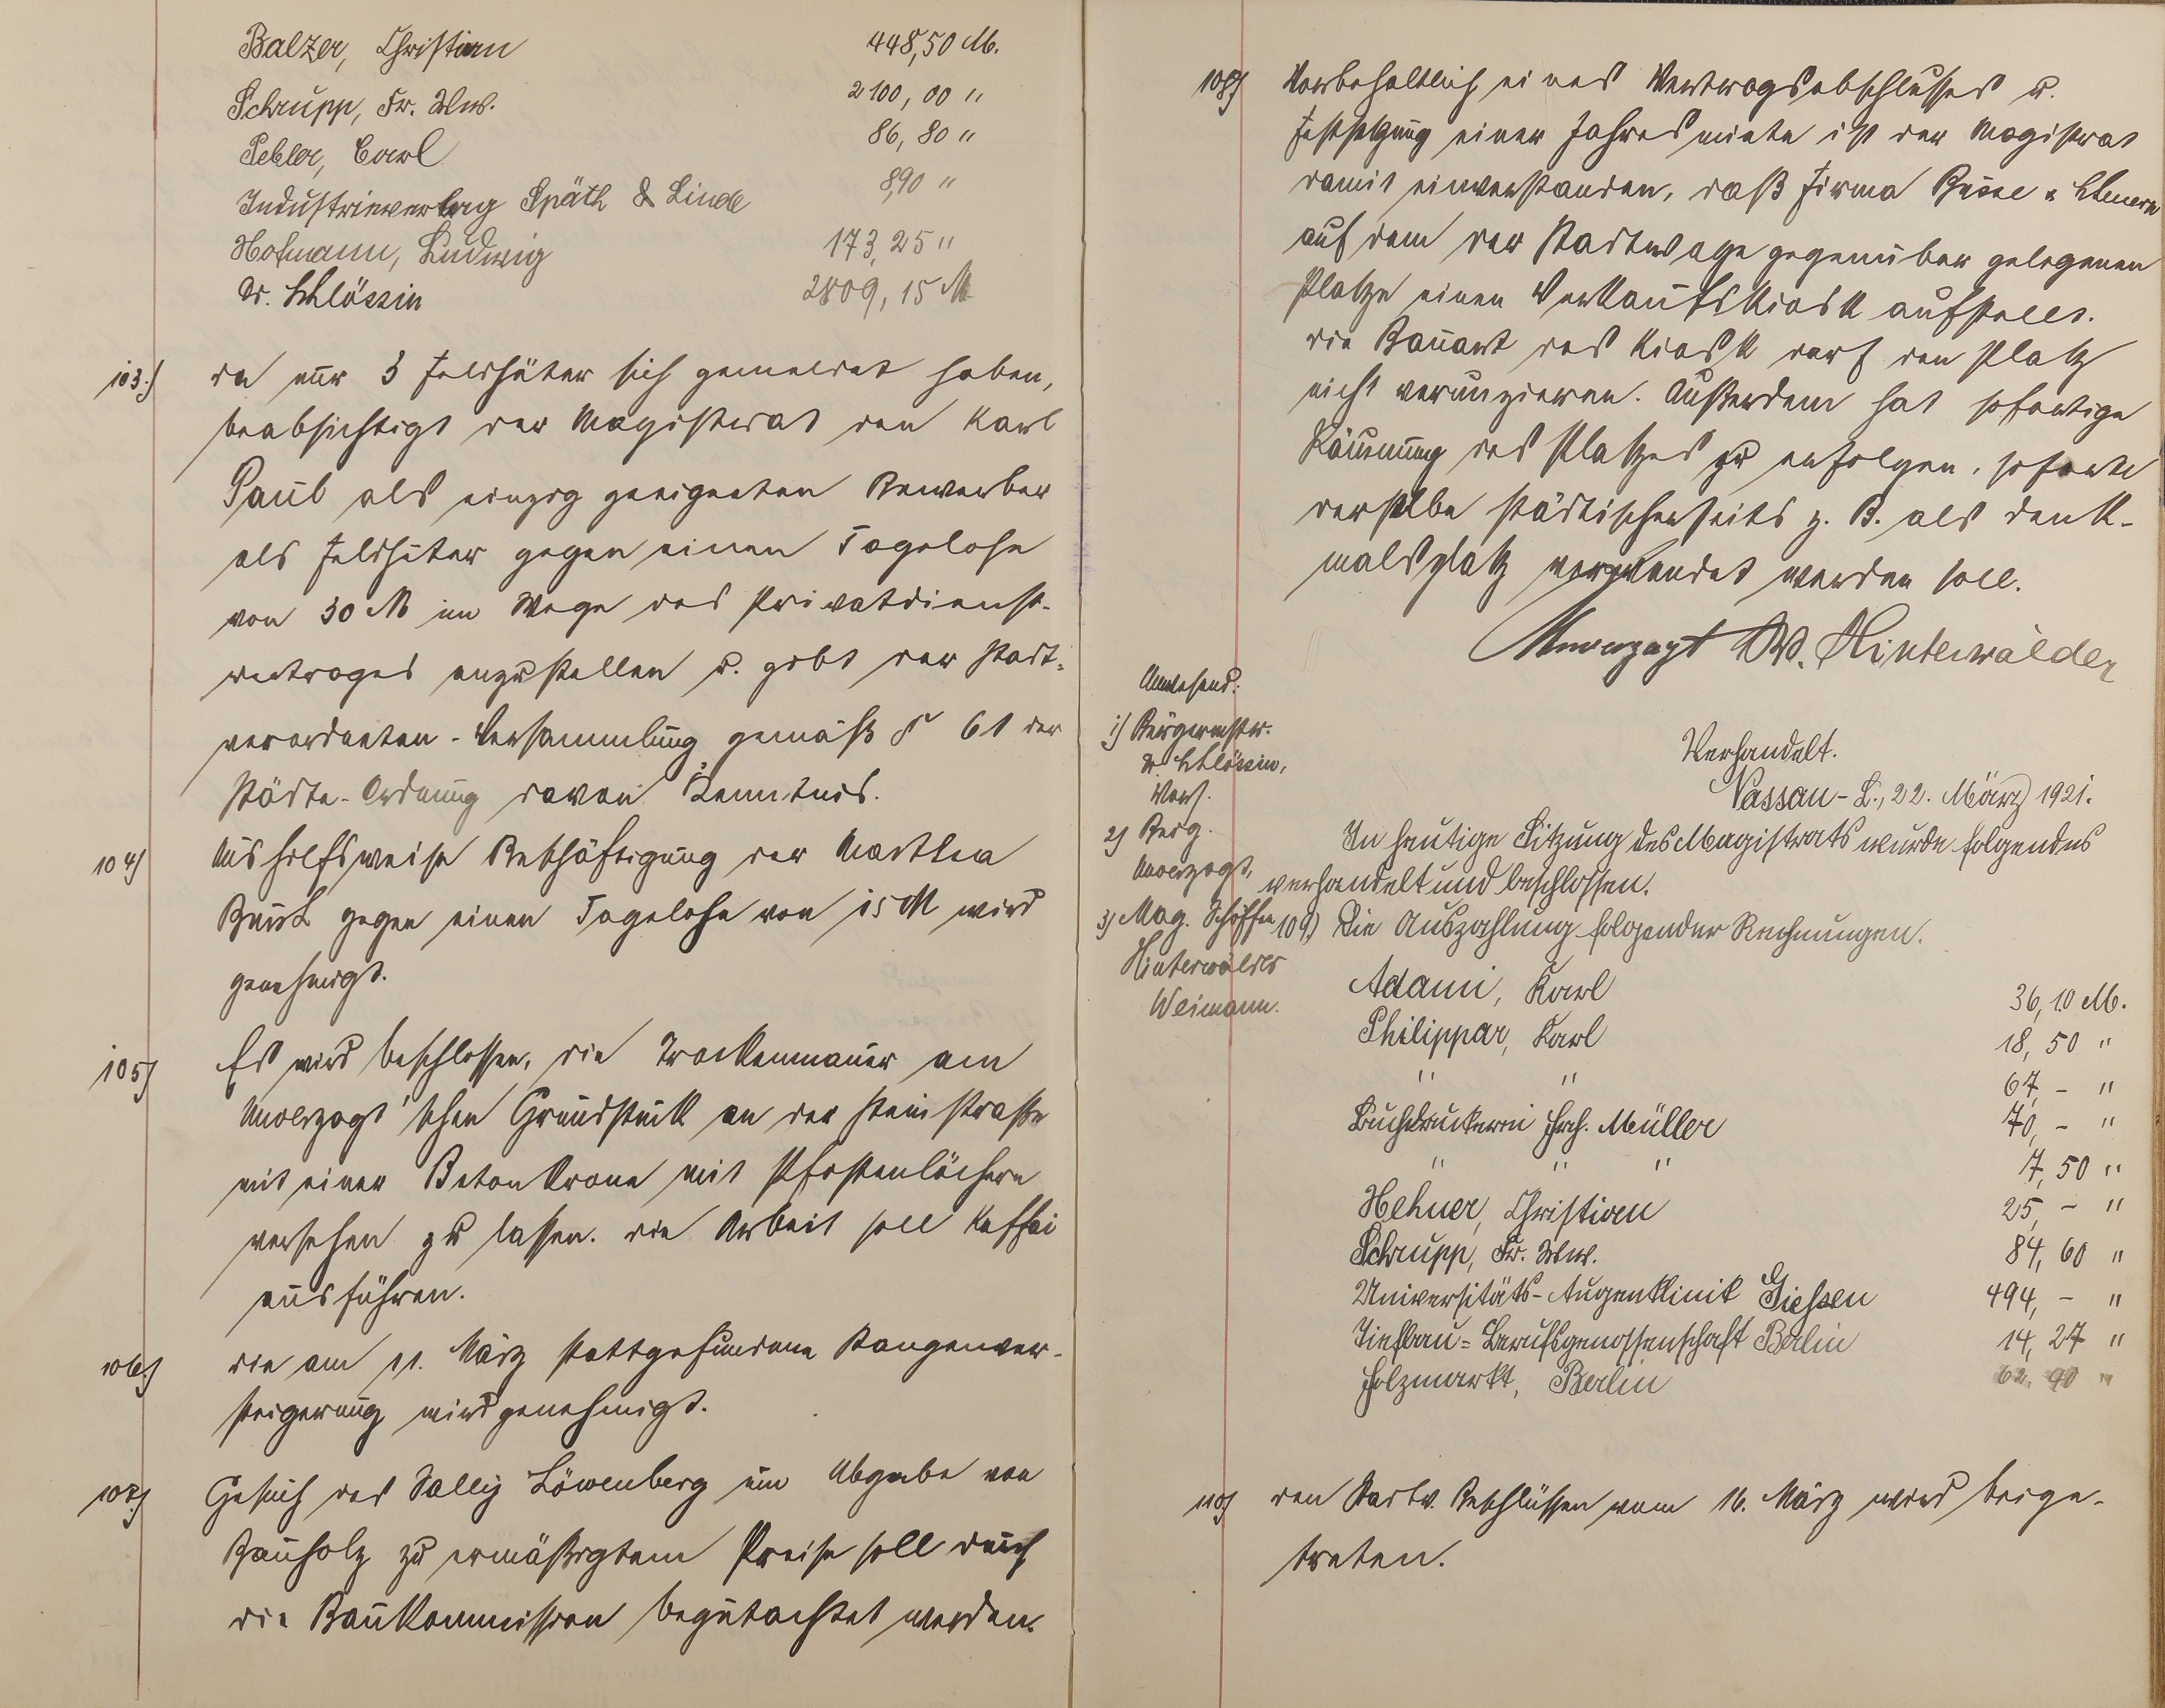 Balzer, Christian 448,50 M.
Schrupp, Fr. Ww. 2100,00 "
Pebler, Carl 86,80 "
Industrieverlag Späth & Linde 8,90 "
Hofmann, Ludwig 173,25 "
Dr. Schlössin 2809,15 M
103.) Da nur 3 Feldhüter sich gemeldet haben,
beabsichtigt der Magistrat den Karl
Paul als einzig geeigneten Bewerber
als Feldhüter gegen einen Tagelohn
von 30 M im Wege des Privatdienst-
vertrages anzustellen u. gibt der Stadt-
verordneten-Versammlung gemäß § 61 der
Städte-Ordnung davon Kenntnis.
104) Aushilfsweise Beschäftigung der Martha
gegen einen Tagelohn von 15 M wird
genehmigt.
105) Es wird beschlossen, die Trockenmauer am
Unverzagt'schen Grundstück an der Steinstraße
mit einer Betonkrone mit Pfostenlöchern
versehen zu lassen. Die Arbeit soll Kaffai
ausführen.
106.) Die am 11. März stattgefundene Stangenver-
steigerung wird genehmigt.
107) Gesuch des Sally Löwenberg um Abgabe von
Bauholz zu ermäßigtem Preise soll durch
die Baukommission begutachtet werden.
108) Vorbehaltlich eines Vertragsabschlusses u.
Festsetzung einer Jahresmiete ist der Magistrat
damit einverstanden, daß Firma Busse &
auf dem der Stadtwage gegenüber gelegenen
Platze einen Verkaufskiosk aufstellt.
Die Bauart des Kiosk darf den Platz
nicht verunzieren. Außerdem hat sofortige
Räumung des Platzes zu erfolgen, sofern
derselbe städtischerseits z. B. als Denk-
malsplatz verwendet werden soll.
Unverzagt W. Hinterwälder
Anwesend:
1) Bürgermstr.
Dr. Schlössin,
Vors.
2) Beig.
Unverzagt,
3) Mag. Schöffen
Hinterwälder
Weimann.
Verhandelt.
Nassau-L., 22. März 1921.
In heutige Sitzung des Magistrats wurde folgendes
verhandelt und beschlossen.
109) Die Auszahlung folgender Rechnungen.
Adami, Karl 36,10 M.
Philippar, Karl 18,50 "
" " 67,- "
Buchdruckerei Hch. Müller 70,- "
" " " 7,50 "
Hehner, Christian 25,- "
Schrupp, Fr. Ww. 84,60 "
Universitäts-Augenklinik Giessen 494,- "
Tiefbau-Berufsgenossenschaft Berlin 14,27 "
Holzmarkt, Berlin 62,90 "
110) Den Stadtv. Beschlüssen vom 16. März wird beige-
treten.